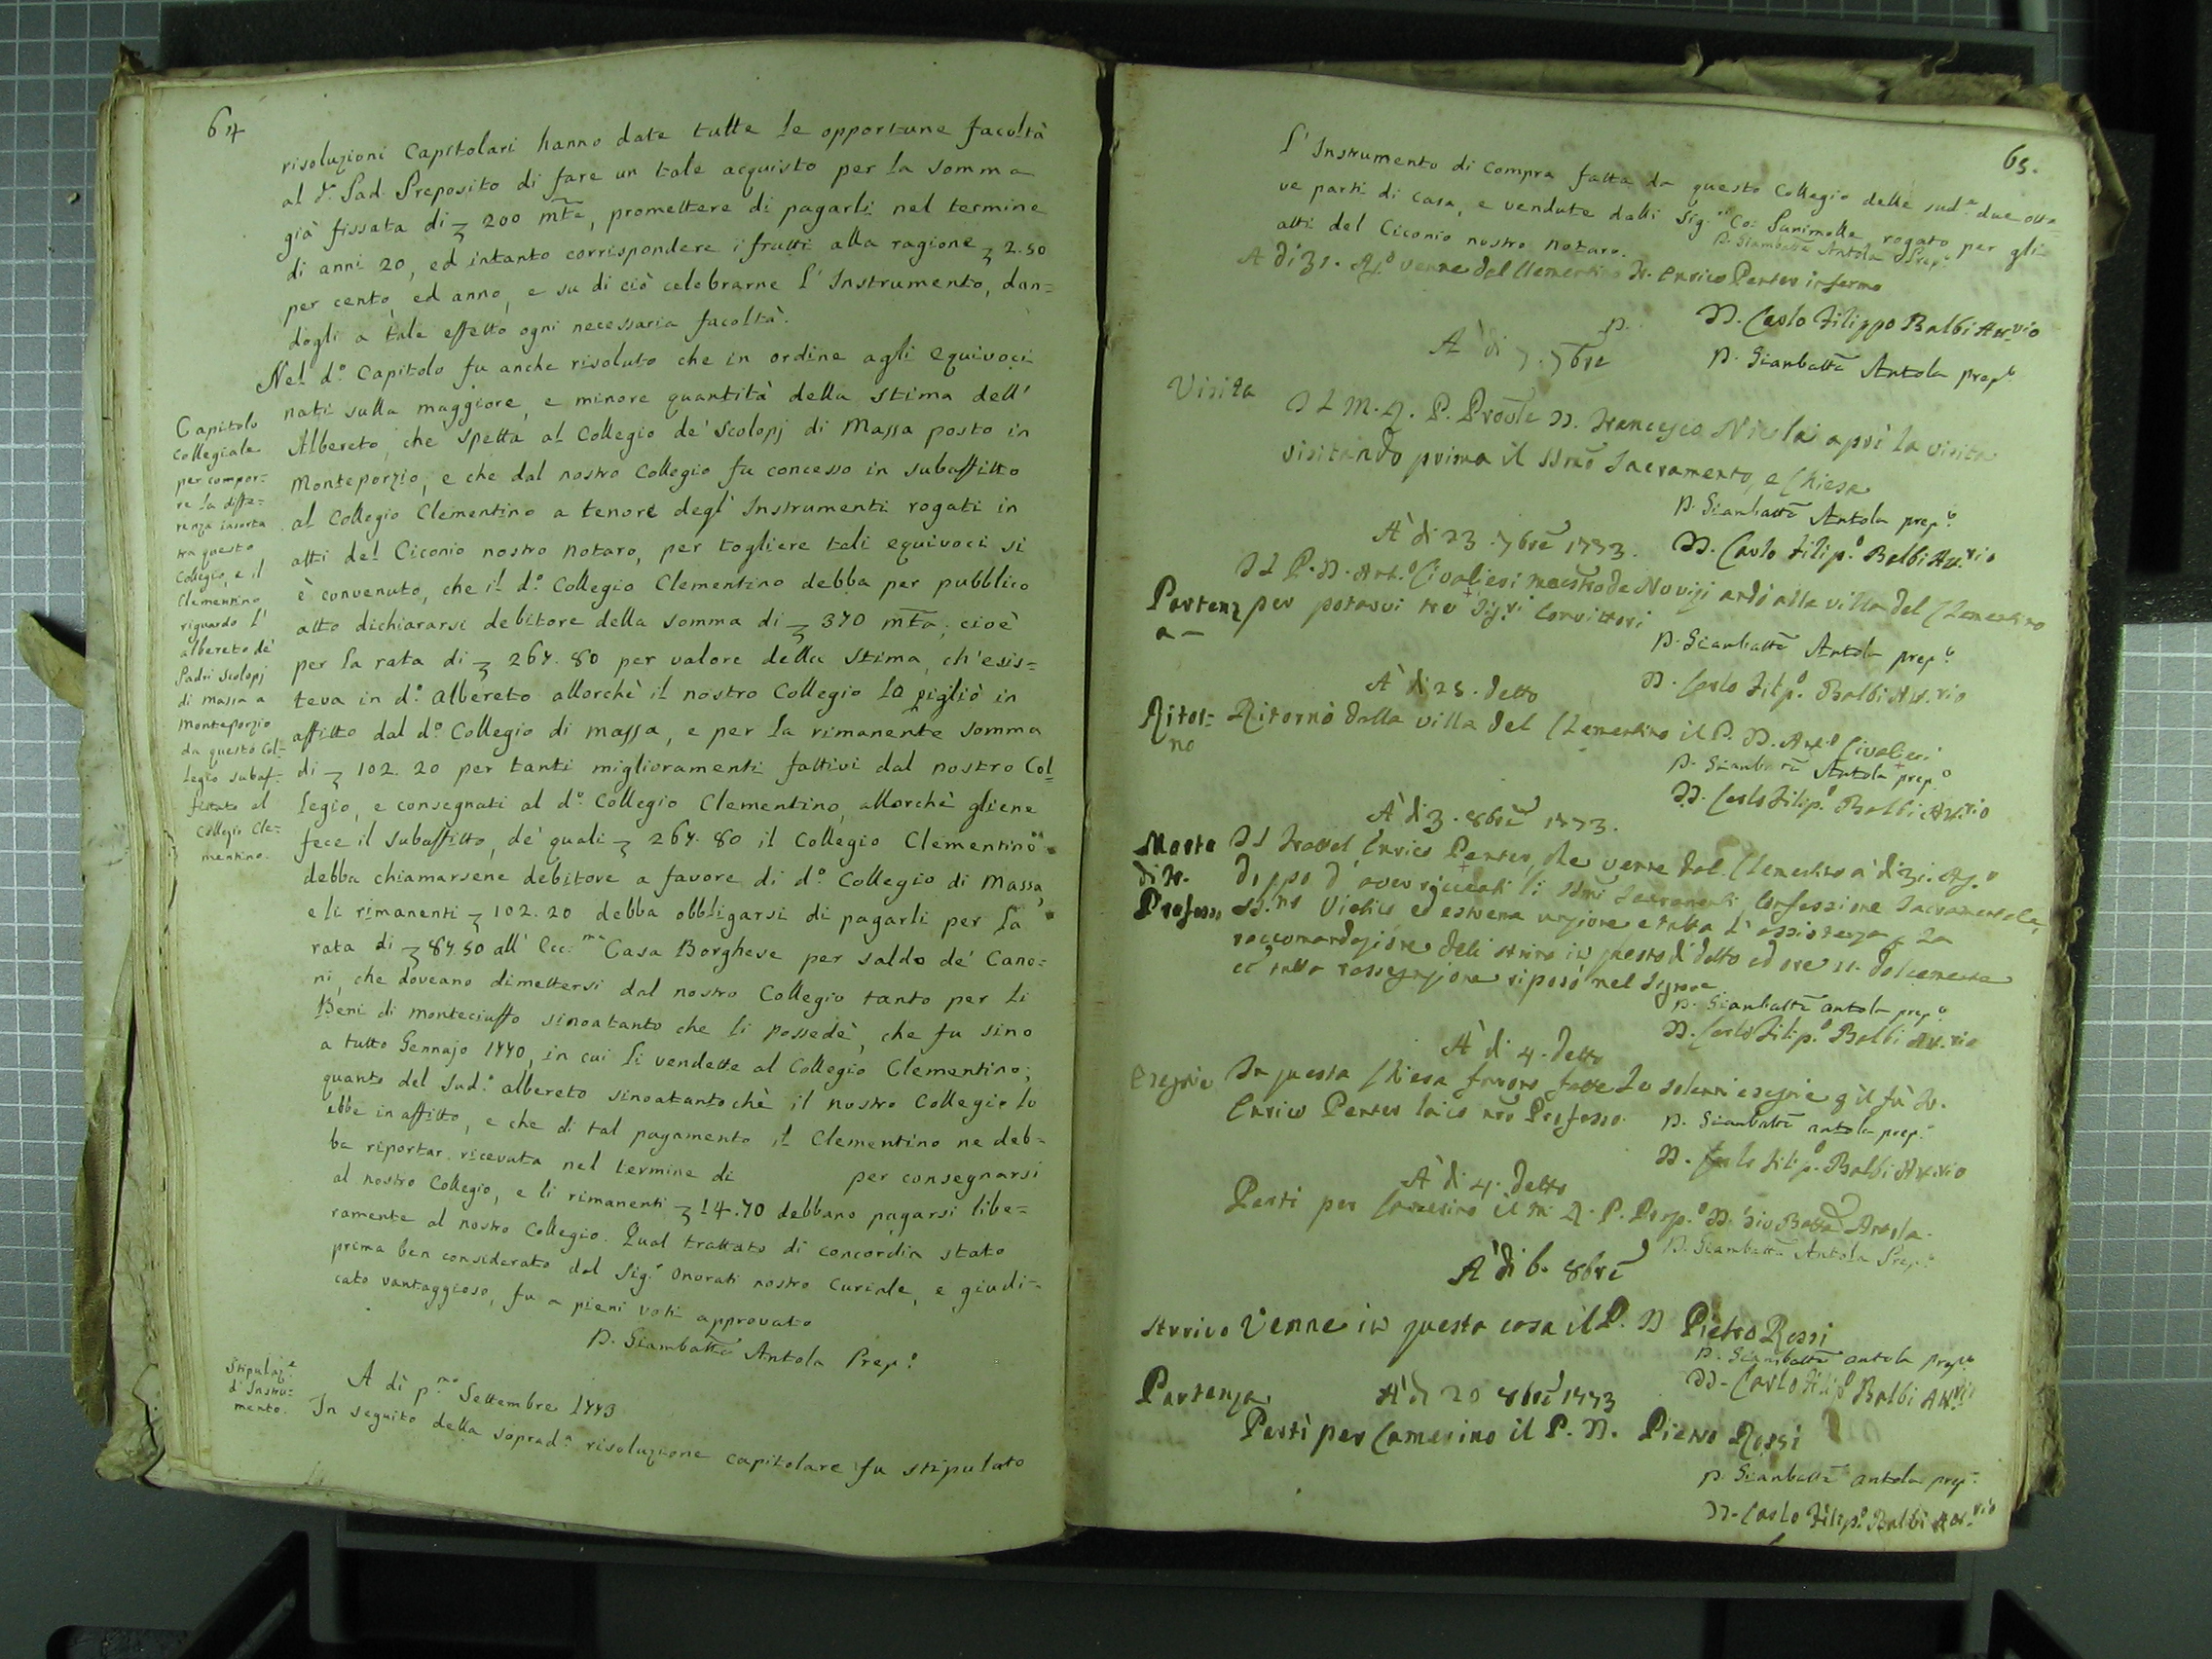 64
risoluzioni Capitolari hanno date tutte le opportune facoltà
al d.º Pad. Preposito di fare un tale acquisto per la somma
già fissata di 200 mta, promettere di pagarli nel termine
di anni 20, ed intanto corrispondere i frutti alla ragione 2.50
per cento, ed anno, e su di ciò celebrarne l'Instrumento, dan=
dogli a tale effetto ogni necessaria facoltà.
Capitolo
Collegiale
per compor=
re la diffe=
renza insorta
tra questo
Collegio, e il
Clementino
riguardo l'
albereto de'
Padri Scolopj
di Massa a
Monteporzio
da questo Col=
legio subaf=
fittato al
Collegio Cle=
mentino.
Nel d.º Capitolo fu anche risoluto che in ordine agli equivoci
nati sulla maggiore, e minore quantità della stima dell'
Albereto, che spetta al Collegio de' Scolopj di Massa posto in
Monteporzio, e che dal nostro Collegio fu concesso in subaffitto
al Collegio Clementino a tenore degl'Instrumenti rogati in
atti del Ciconio nostro notaro, per togliere tali equivoci si
è convenuto, che il d.º Collegio Clementino debba per pubblico
atto dichiararsi debitore della somma di 370 mta, cioè
per la rata di 267.80 per valore della stima, ch'esis=
teva in d.º albereto allorchè il nostro Collegio lo pigliò in
affitto dal d.º Collegio di Massa, e per la rimanente somma
di 102.20 per tanti miglioramenti fattivi dal nostro Col=
legio, e consegnati al d.º Collegio Clementino, allorchè gliene
fece il subaffitto, de' quali 267.80 il Collegio Clementino
debba chiamarsene debitore a favore di d.º Collegio di Massa,
e li rimanenti 102.20 debba obbligarsi di pagarli per la
rata di 87.50 all'Ecc.ma Casa Borghese per saldo de' Cano=
ni, che doveano dimettersi dal nostro Collegio tanto per li
Beni di monteciuffo sinoatanto che li possedè, che fu sino
a tutto Gennajo 1770, in cui li vendette al Collegio Clementino;
quanto del sud.º albereto sinoatantochè il nostro Collegio lo
ebbe in affitto, e che di tal pagamento il Clementino ne deb=
ba riportar ricevuta nel termine di per consegnarsi
al nostro Collegio, e li rimanenti 14.70 debbano pagarsi libe=
ramente al nostro Collegio. Qual trattato di concordia stato
prima ben considerato dal Sig.r Onorati nostro Curiale, e giudi=
cato vantaggioso, fu a pieni voti approvato
D. Giambatta Antola Prep.º
Stipulaz.e
d'Instru=
mento.
A dì p.mo Settembre 1773
In seguito della soprad.a risoluzione capitolare fu stipulato
65.
l'Instrumento di Compra fatta da questo Collegio delle sud.e due otta=
ve parti di casa, e vendute dalli Sig.ri Co: rogato per gli
atti del Ciconio nostro notaro.
D. Giambatta Antola Prep.º
A di 31. Ag.º venne dal Clementino Fr. Enrico Penter infermo
D. Carlo Filippo Balbi Att.rio
A di 7. 7bre
D. Giambatta Antola prep.º
Visita
Il M. R. P. Prove D. Francesco Nicolai aprì la visita
visitando prima il SSmo Sacramento, e Chiesa
D. Giambatta Antola prep.º
A di 23. 7bre 1773.
D. Carlo Filip.º Balbi Att.rio
Il P. D. Ant.º Civalieri maestro de Novizj andò alla villa del Clementino
Partenz
a
per portarvi tre Sig.ri Convittori
D. Giambatta Antola prep.º
A di 25. detto
D. Carlo Filip.º Balbi Att.rio
Ritor=
no
Ritornò dalla villa del Clementino il P. D. Ant.º Civalieri
D. Giambatta Antola prep.º
D. Carlo Filip.º Balbi Att.rio
A di 3. 8bre 1773.
Morte
di Fr.
Professo
Il Fratel Enrico Penter, che venne dal Clementino à di 31. Ag.º
doppo d'aver ricevuti li SSmi Sacramenti Confessione Sacramentale,
SS.mo Viatico ed estrema unzione e tutta l'assistenza, e la
raccomandazione dell'anima in questo di detto ad ore 11. dolcemente
ed tutta rassegnazione riposò nel Signore
D. Giambatta antola prep.º
D. Carlo Filip.º Balbi Att.rio
A di 4. detto
Esequie
In questa Chiesa furono fatte le solenni esequie p il fù Fr.
Enrico Penter laico nro Professo.
D. Giambatta antola prep.º
D. Carlo Filip.º Balbi Att.rio
A di 4. detto
Partì per Camerino il M. R. P. Prep.º D. Gio Batta Antola.
D. Giambatta Antola Prep.º
A di 6. 8bre
Arrivo
Venne in questa casa il P. D. Pietro Rossi
D. Giambatta antola prep.º
D. Carlo Filip.º Balbi Att.rio
Partenza
A di 20 8bre 1773
Partì per Camerino il P. D. Pietro Rossi
D. Giambatta antola prep.º
D. Carlo Filip.º Balbi Att.rio